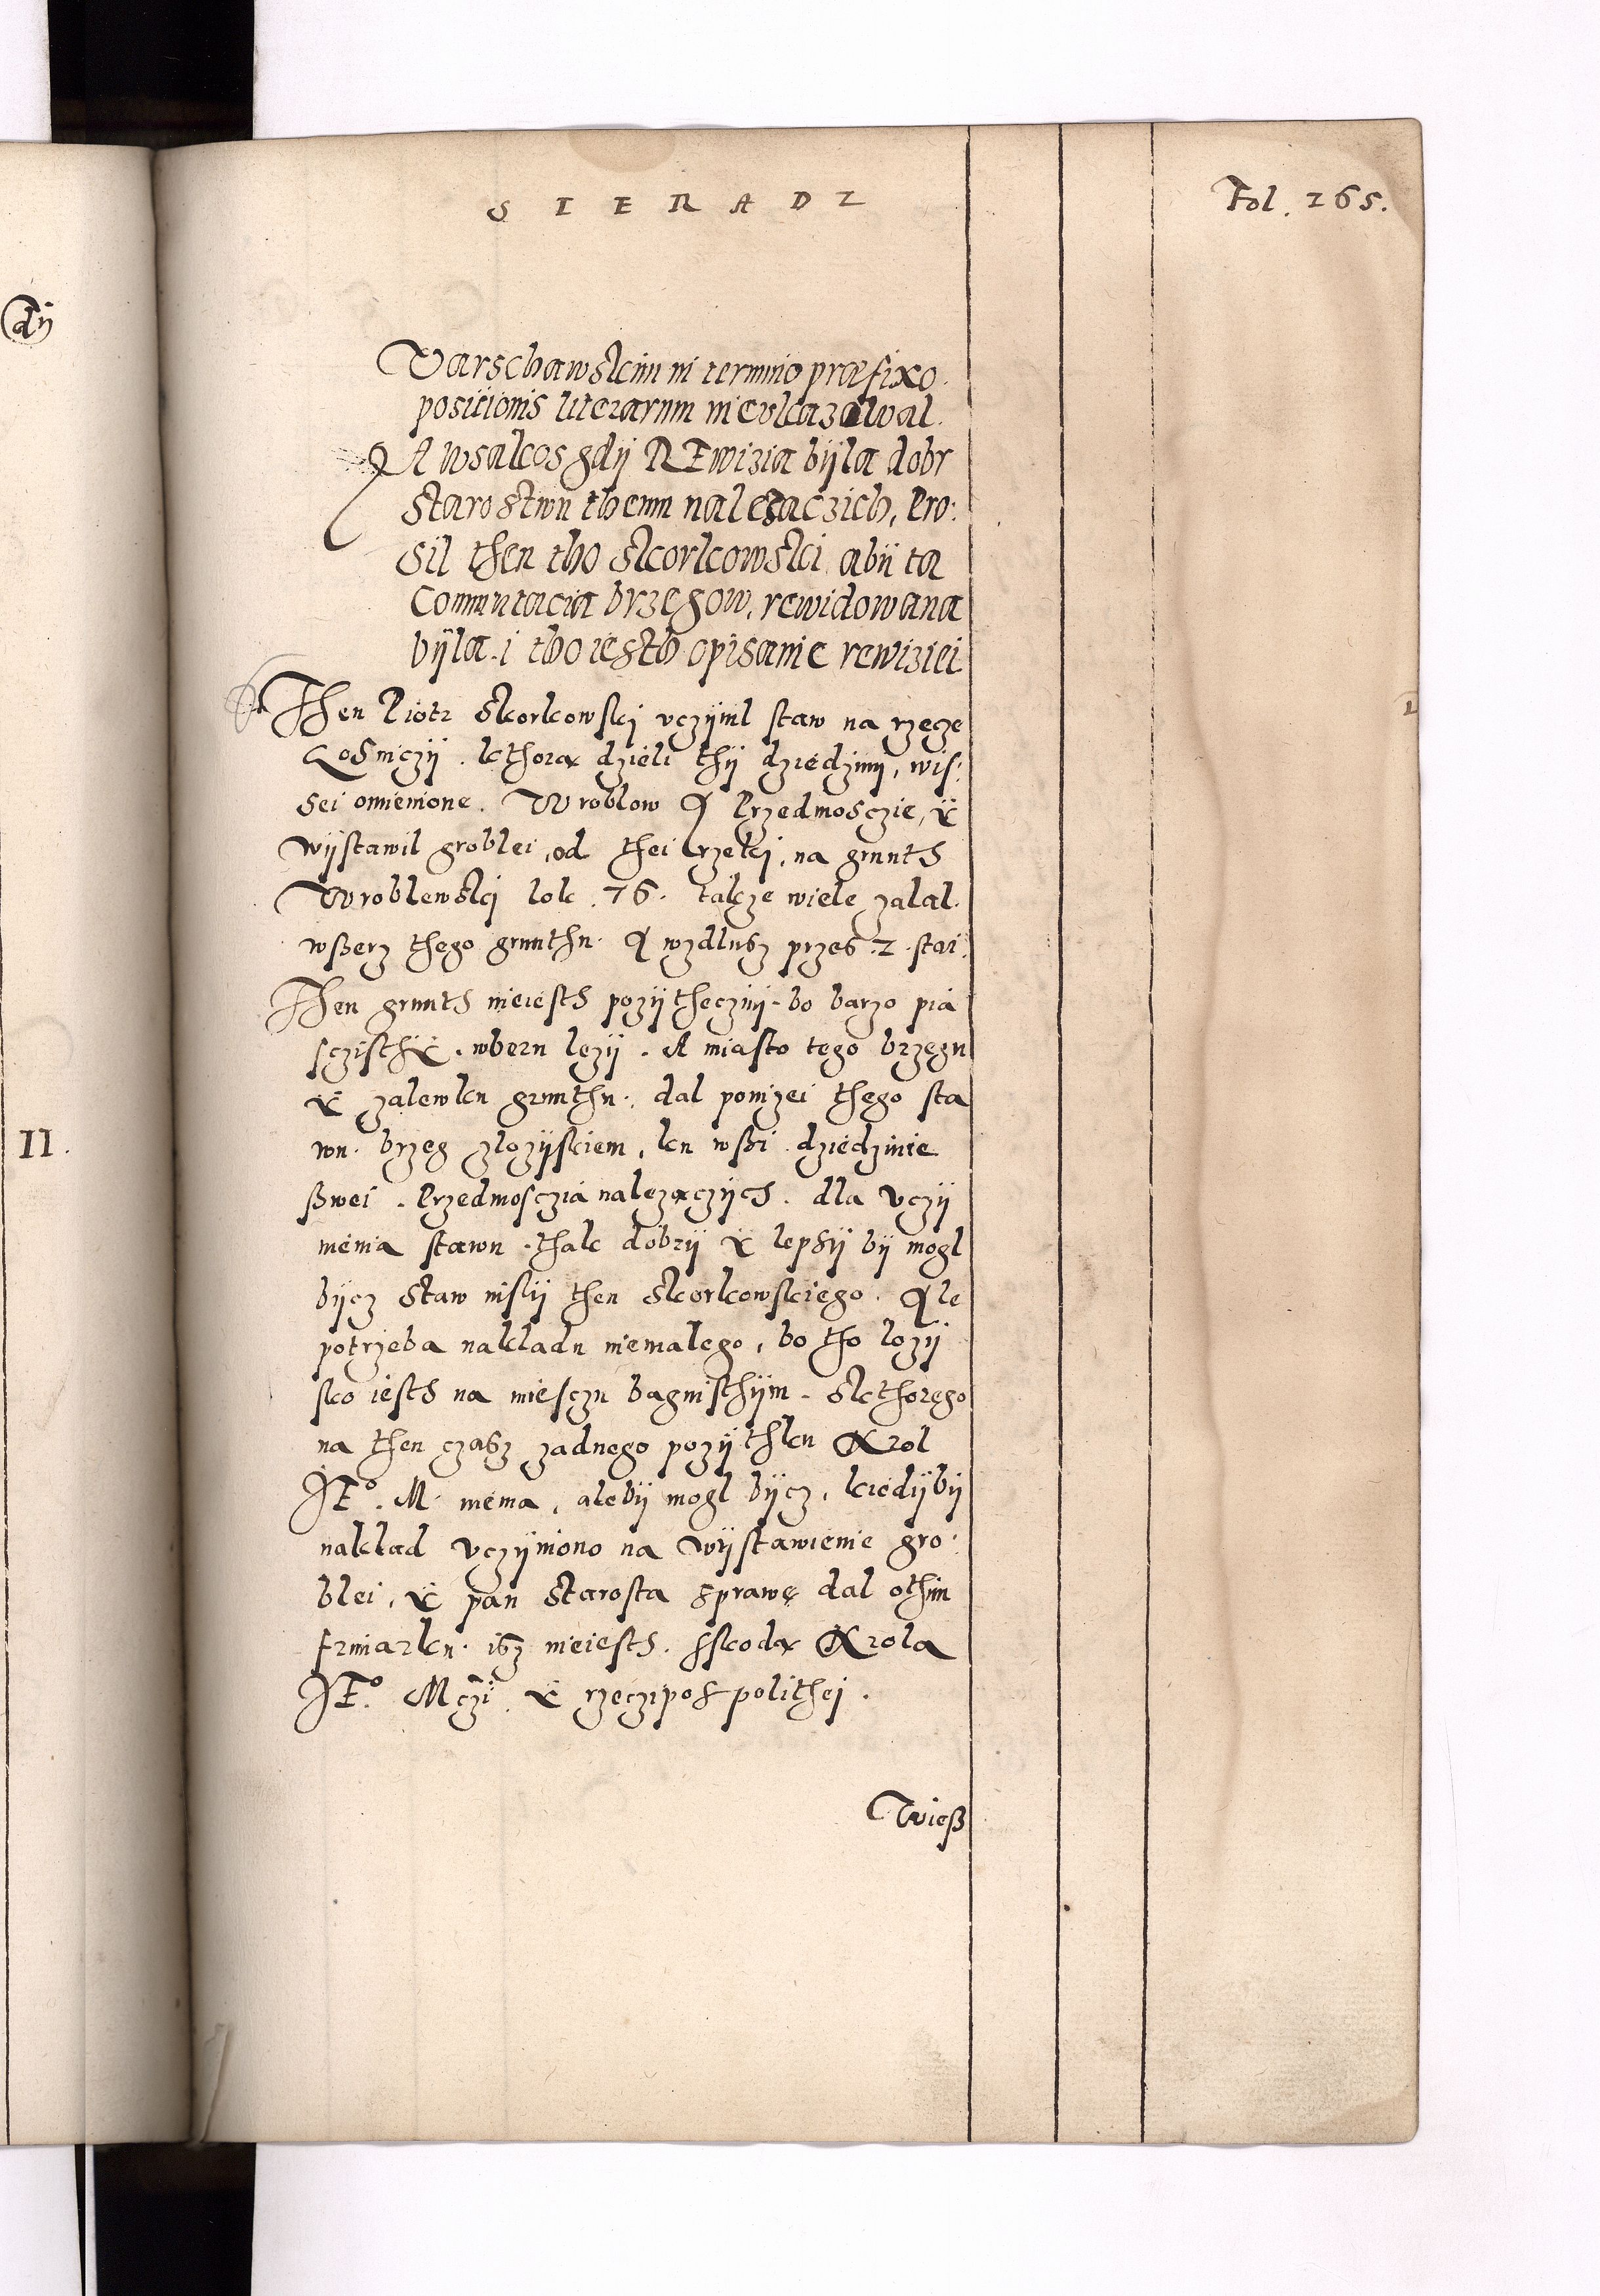 SIERADZ
Fol. 265.
dÿ
Varschawskim in termino præfixo
positionis literarum nieukazowal.
A wsakos gdÿ REwizia bÿla dobr
Starostwu themu nalezaczich, Pro:
sil then tho Skorkowski abÿ ta
Commutacia brzegow, rewidowana
bÿla. i tho iesth opisanie rewiziei
Then Piotr Skorkowskj uczÿnil staw na rzecze
Zosniczÿ. kthora dzieli thÿ dziedzinÿ, wis:
sei omienione. Wroblow A Przedmosczie, Y
wÿstawil groblei, od thei rzekj, na grunth
Wroblewskj lok. 76. takze wiele zalal.
wßerz thego grunthu. A wzdlusz przes 2 stai.
Then grunth nieiesth pozÿthecznÿ. bo barzo pia
sczisthY. wberu lezÿ. A miasto tego brzegu
Y zalewku grunthu. dal ponizei thego sta
wu. brzeg zlozÿskiem, ku wßi dziedzinie
ßwei. Przedmosczia nalezaczÿch. dla uczÿ
nienia stawu. thak dobrÿ Y lepsÿ bÿ mogl
bÿcz Staw nislÿ then Skorkowskiego. Ale
potrzeba nakladu niemalego, bo tho lozÿ
sko iesth na miesczu bagnisthÿm. Skthorego
na then czasz zadnego pozÿthku Krol
JEº. M. niema, alebÿ mogl bÿcz, kiedÿbÿ
naklad uczÿniono na wÿstawienie gro:
blei, Y pan Starosta sprawę dal othim
frimarku. isz nieiesth. sskoda Krola
JEº. Mczi. Y rzeczipospolithej.
Wieß
II.